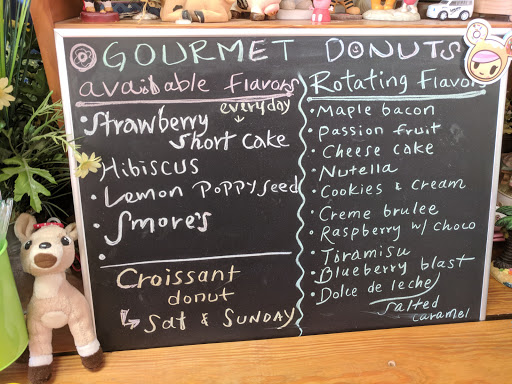 GOURMET DONUTS
available flavors
everyday
• Strawberry
short cake
• Hibiscus
• Lemon Poppyseed
• S'more's
•
Croissant
donut
↳ Sat & SUNDAY
Rotating Flavors
• Maple bacon
• Passion fruit
• Cheese cake
• Nutella
• Cookies & Cream
• Creme brulee
• Raspberry w/ choco
• Tiramisu
• Blueberry blast
• Dolce de leche
salted
caramel